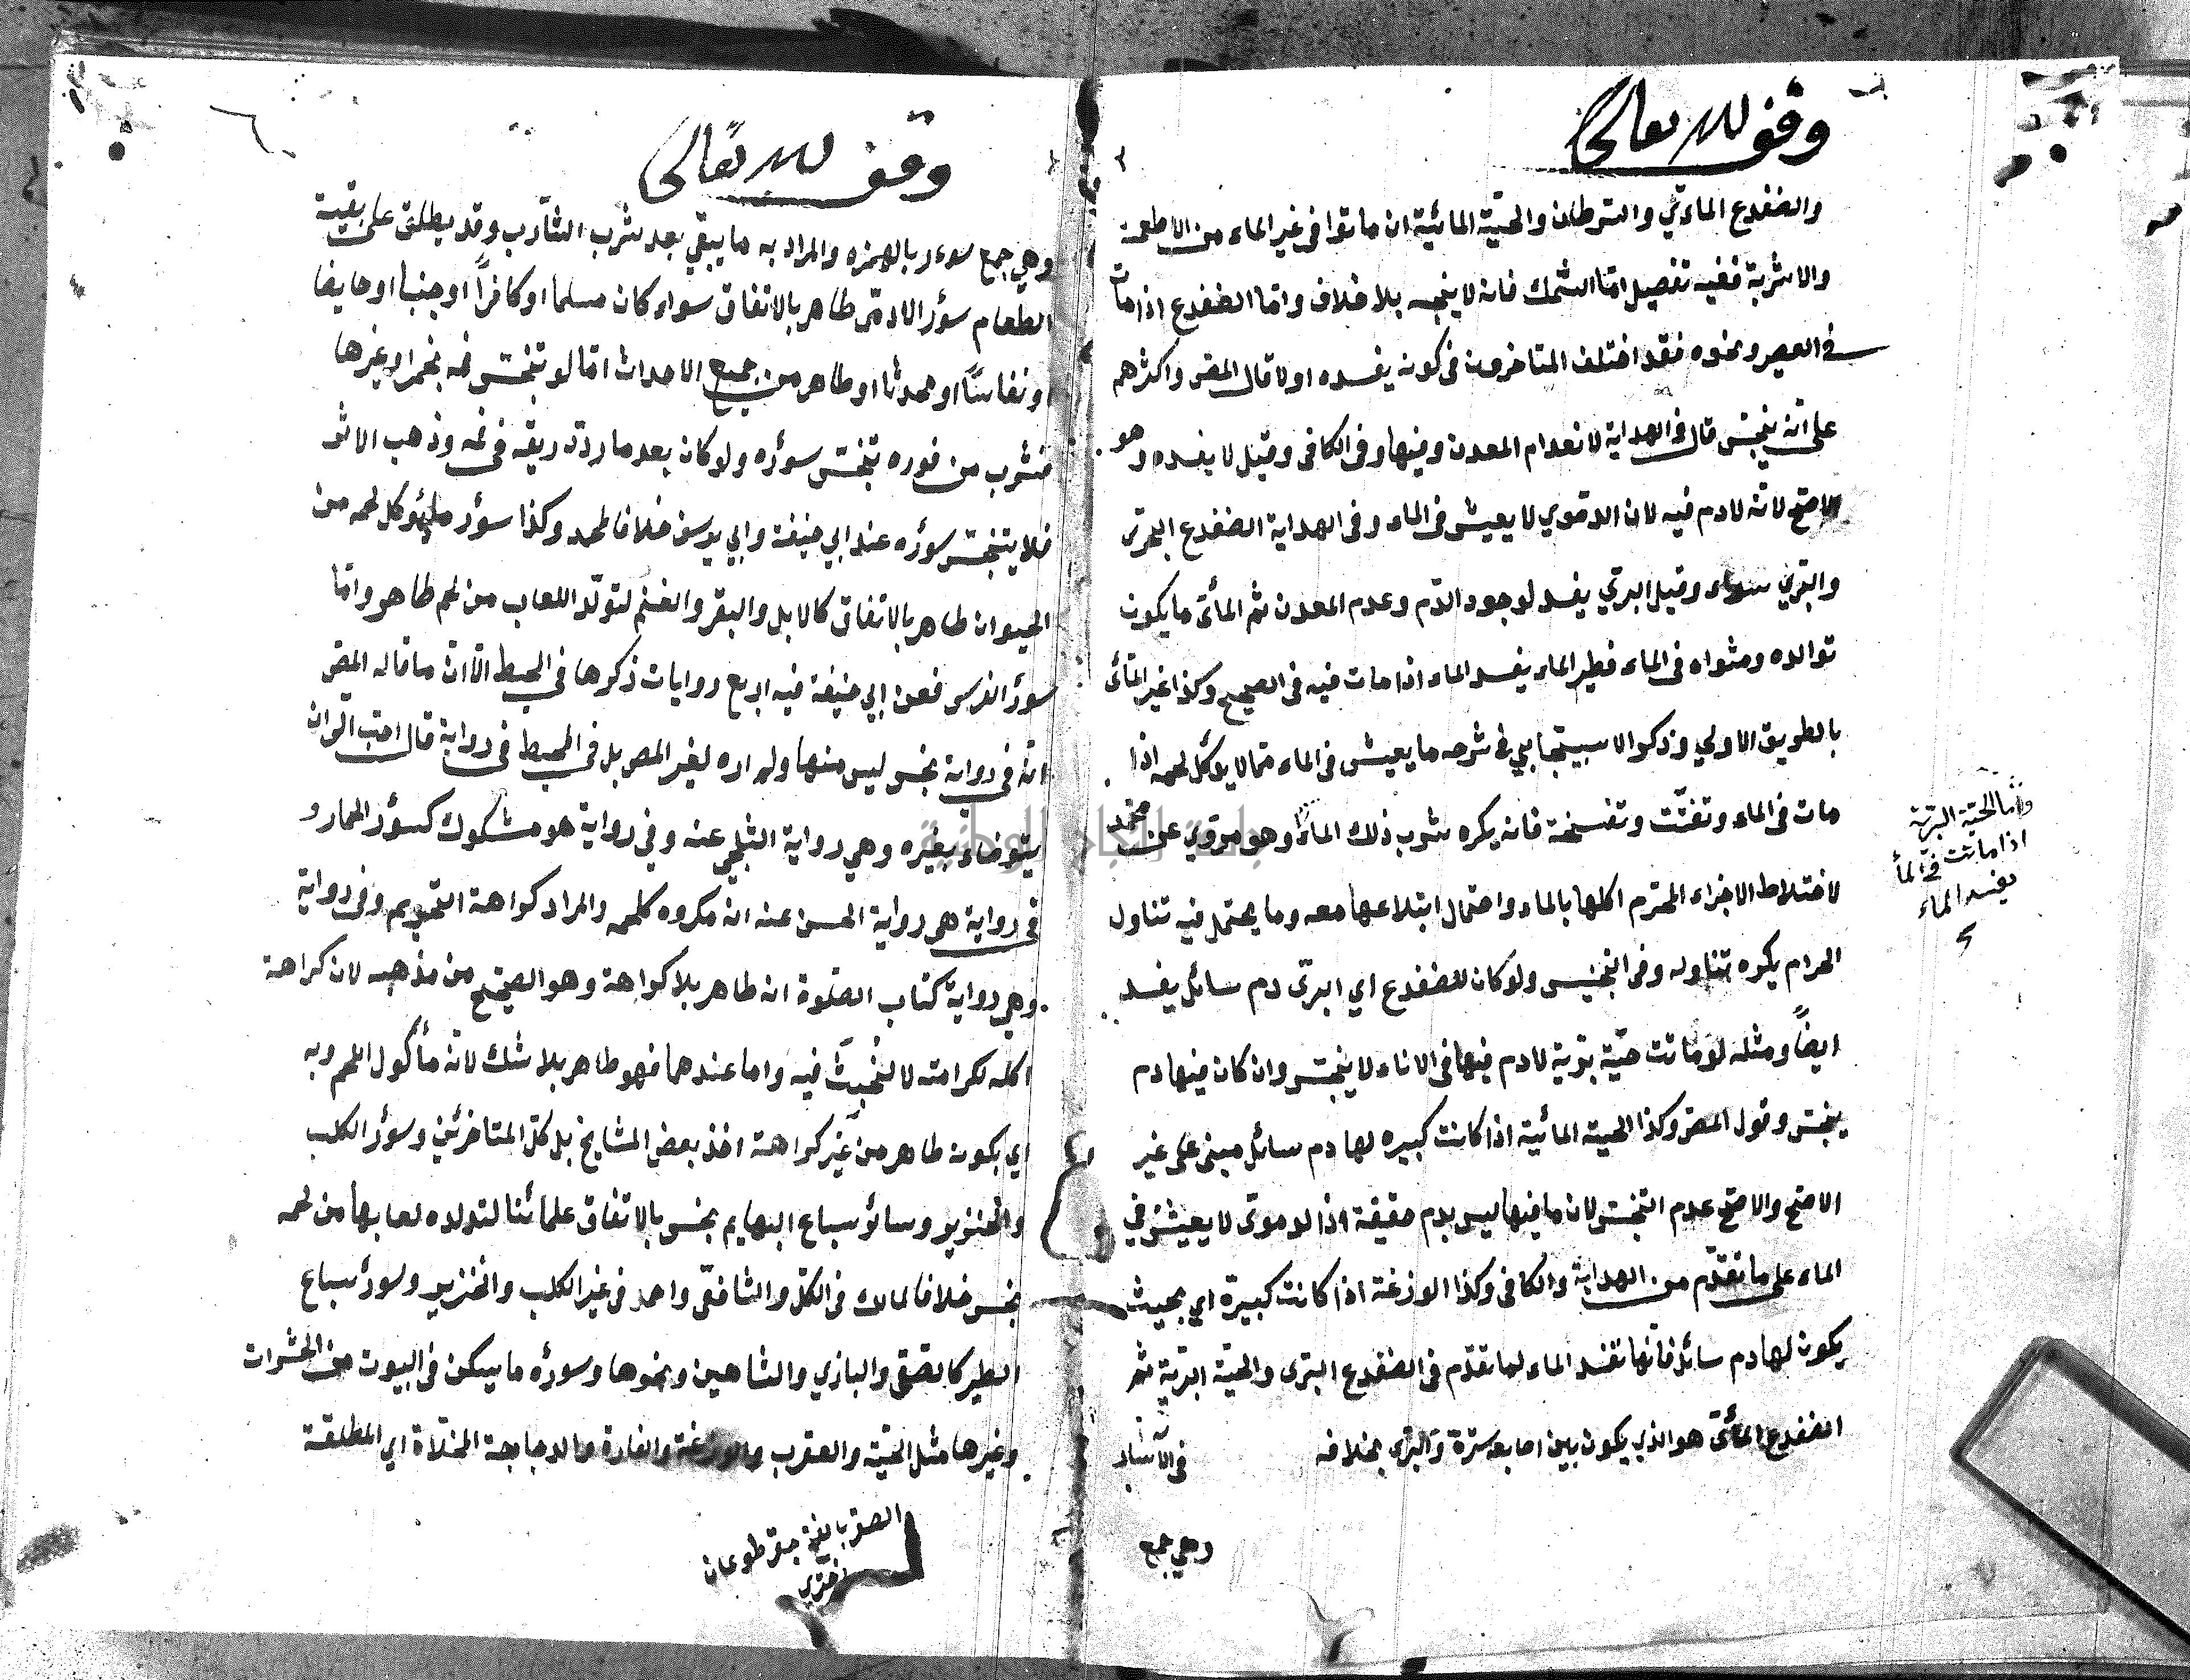 وقف لله تعالى
والضفدع المائي والسرطان والحيّة المائية ان ماتوا في غير الماء من الاطعمة
والاشربة ففيه تفصيل امّا السّمك فانه لا ينجسه بلا خلاف وامّا الضفدع اذا مات
في العصير ونحوه فقد اختلف المتاخرون في كونه يفسده اولا قال المصّ واكثرهم
على انّه ينجّس قال في الهداية لانعدام المعدن وفيها وفي الكافي وقيل لا يفسده وهو
الاصحّ لانّه لا دم فيه لان الدموي لا يعيش في الماء وفي الهداية الضفدع البحري
والبرّي سواء وقيل البرّي يفسد لوجود الدّم وعدم المعدن ثم المائي ما يكون
توالده ومثواه في الماء فطير الماء يفسد الماء اذا مات فيه في الصحيح وكذا غير المائي
بالطريق الاولي وذكر الاسبيجابي في شرحه ما يعيش في الماء ممّا لا يؤكل لحمه اذا
مات في الماء وتفتّت وتفسخة فانه يكره شرب ذلك الماء وهو مروي عن محمّد
لاختلاط الاجزاء المحترم اكلها بالماء واحتمال ابتلاعها معه وما يحتمل فيه تناول
الحرام يكره تناوله وفي التجنيس ولو كان للضفدع اي البرّى دم سائل يفسد
ايضاً ومثله لو ماتت حيّة برّية لا دم فيها في الاناء لا ينجّس وان كان فيها دم
ينجّس وقول المصّ وكذا الحية المائية اذا كانت كبيره لها دم سائل مبنى على غير
الاصحّ والاصحّ عدم التنجّس لان ما فيها ليس بدم حقيقة اذ الدموىّ لا يعيش في
الماء على ما تقدّم من الهداية والكافي وكذا الوزغة اذا كانت كبيرة اي بحيث
يكون لها دم سائل فانّها تفسد الماء لما تقدّم في الضفدع البرّى والحيّة البرّية ثم
الضفدع المائيّ هو الذي يكون بين اصابعه سترة والبرّي بخلافه في الآسار
وهي جمع
وامّا الحيّة البرّيّة
اذا ماتت في الماء
يفسد الماء
وقف لله تعالى
وهي جمع سوءر بالهمزه والمراد به ما يبقي بعد شرب الشّارب وقد يطلق على بقية
الطعام سؤر الادمّي طاهر بالاتفاق سواء كان مسلما او كافراً او جنباً او حايضا
او نفاسًا او محدثا او طاهر من جميع الاحداث امّا لو تنجّس فمه بخمر او غيرها
فشرب من فوره تنجّس سوره ولو كان بعد ما ردّد ريقه في فمه وذهب الاثر
فلا يتنجّس سوره عند ابي حنيفة وابي يوسف خلافا لمحمد وكذا سؤر ما يؤكل لحمه من
الحيوان طاهر بالاتفاق كالابل والبقر والغنم لتولّد اللعاب من لحم طاهر وامّا
سورُ الفرس فعن ابي حنيفة فيه اربع روايات ذكرها في المحيط الّا انّ ما قاله المصّ
انّه في رواية نجس ليس منها ولم اره لغير المص بل في المحيط في رواية قال احبّ الّي ان
يتوضاء بغيره وهي رواية البلخي عنه وفي رواية هو مشكوك كسؤر الحمار و
في رواية هي رواية الحسن عنه انه مكروه كلحمه والمراد كراهة التحريم وفي رواية
وهي رواية كتاب الصّلوة انه طاهر بلا كراهة وهو الصحيح من مذهبه لان كراهة
اكله لكرامته لا لخبث فيه واما عندهما فهو طاهر بلا شك لانّه مأكول اللحم وبه
اي بكونه طاهر من غير كراهة اخذ بعض المشايخ بل كلّ المتاخرين وسؤر الكلب
والخنزير وسائر سباع البهايم نجس بالاتفاق علمائنا لتولده لعابها من لحمه
نجس خلافا لمالك في الكلّ والشافعّي واحمد في غير الكلب والخنزير وسورُ سباع
الطير كالصّقر والبازي والشاهين ونحوها وسوره ما يسكن في البيوت من الحشرات
وغيرها مثل الحيّة والعقرب والوزغة والفارة والدجاجة المخلاة اي المطلقة